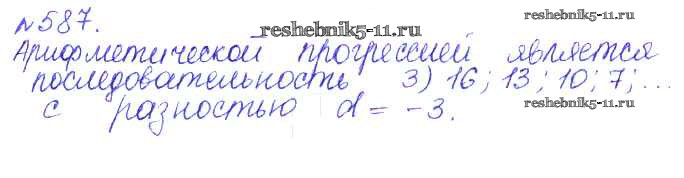 №587.
reshebnik5-11.ru
Арифметической прогрессией является
последовательность 3) 16; 13; 10; 7; ...
с разностью d = -3.
reshebnik5-11.ru
reshebnik5-11.ru